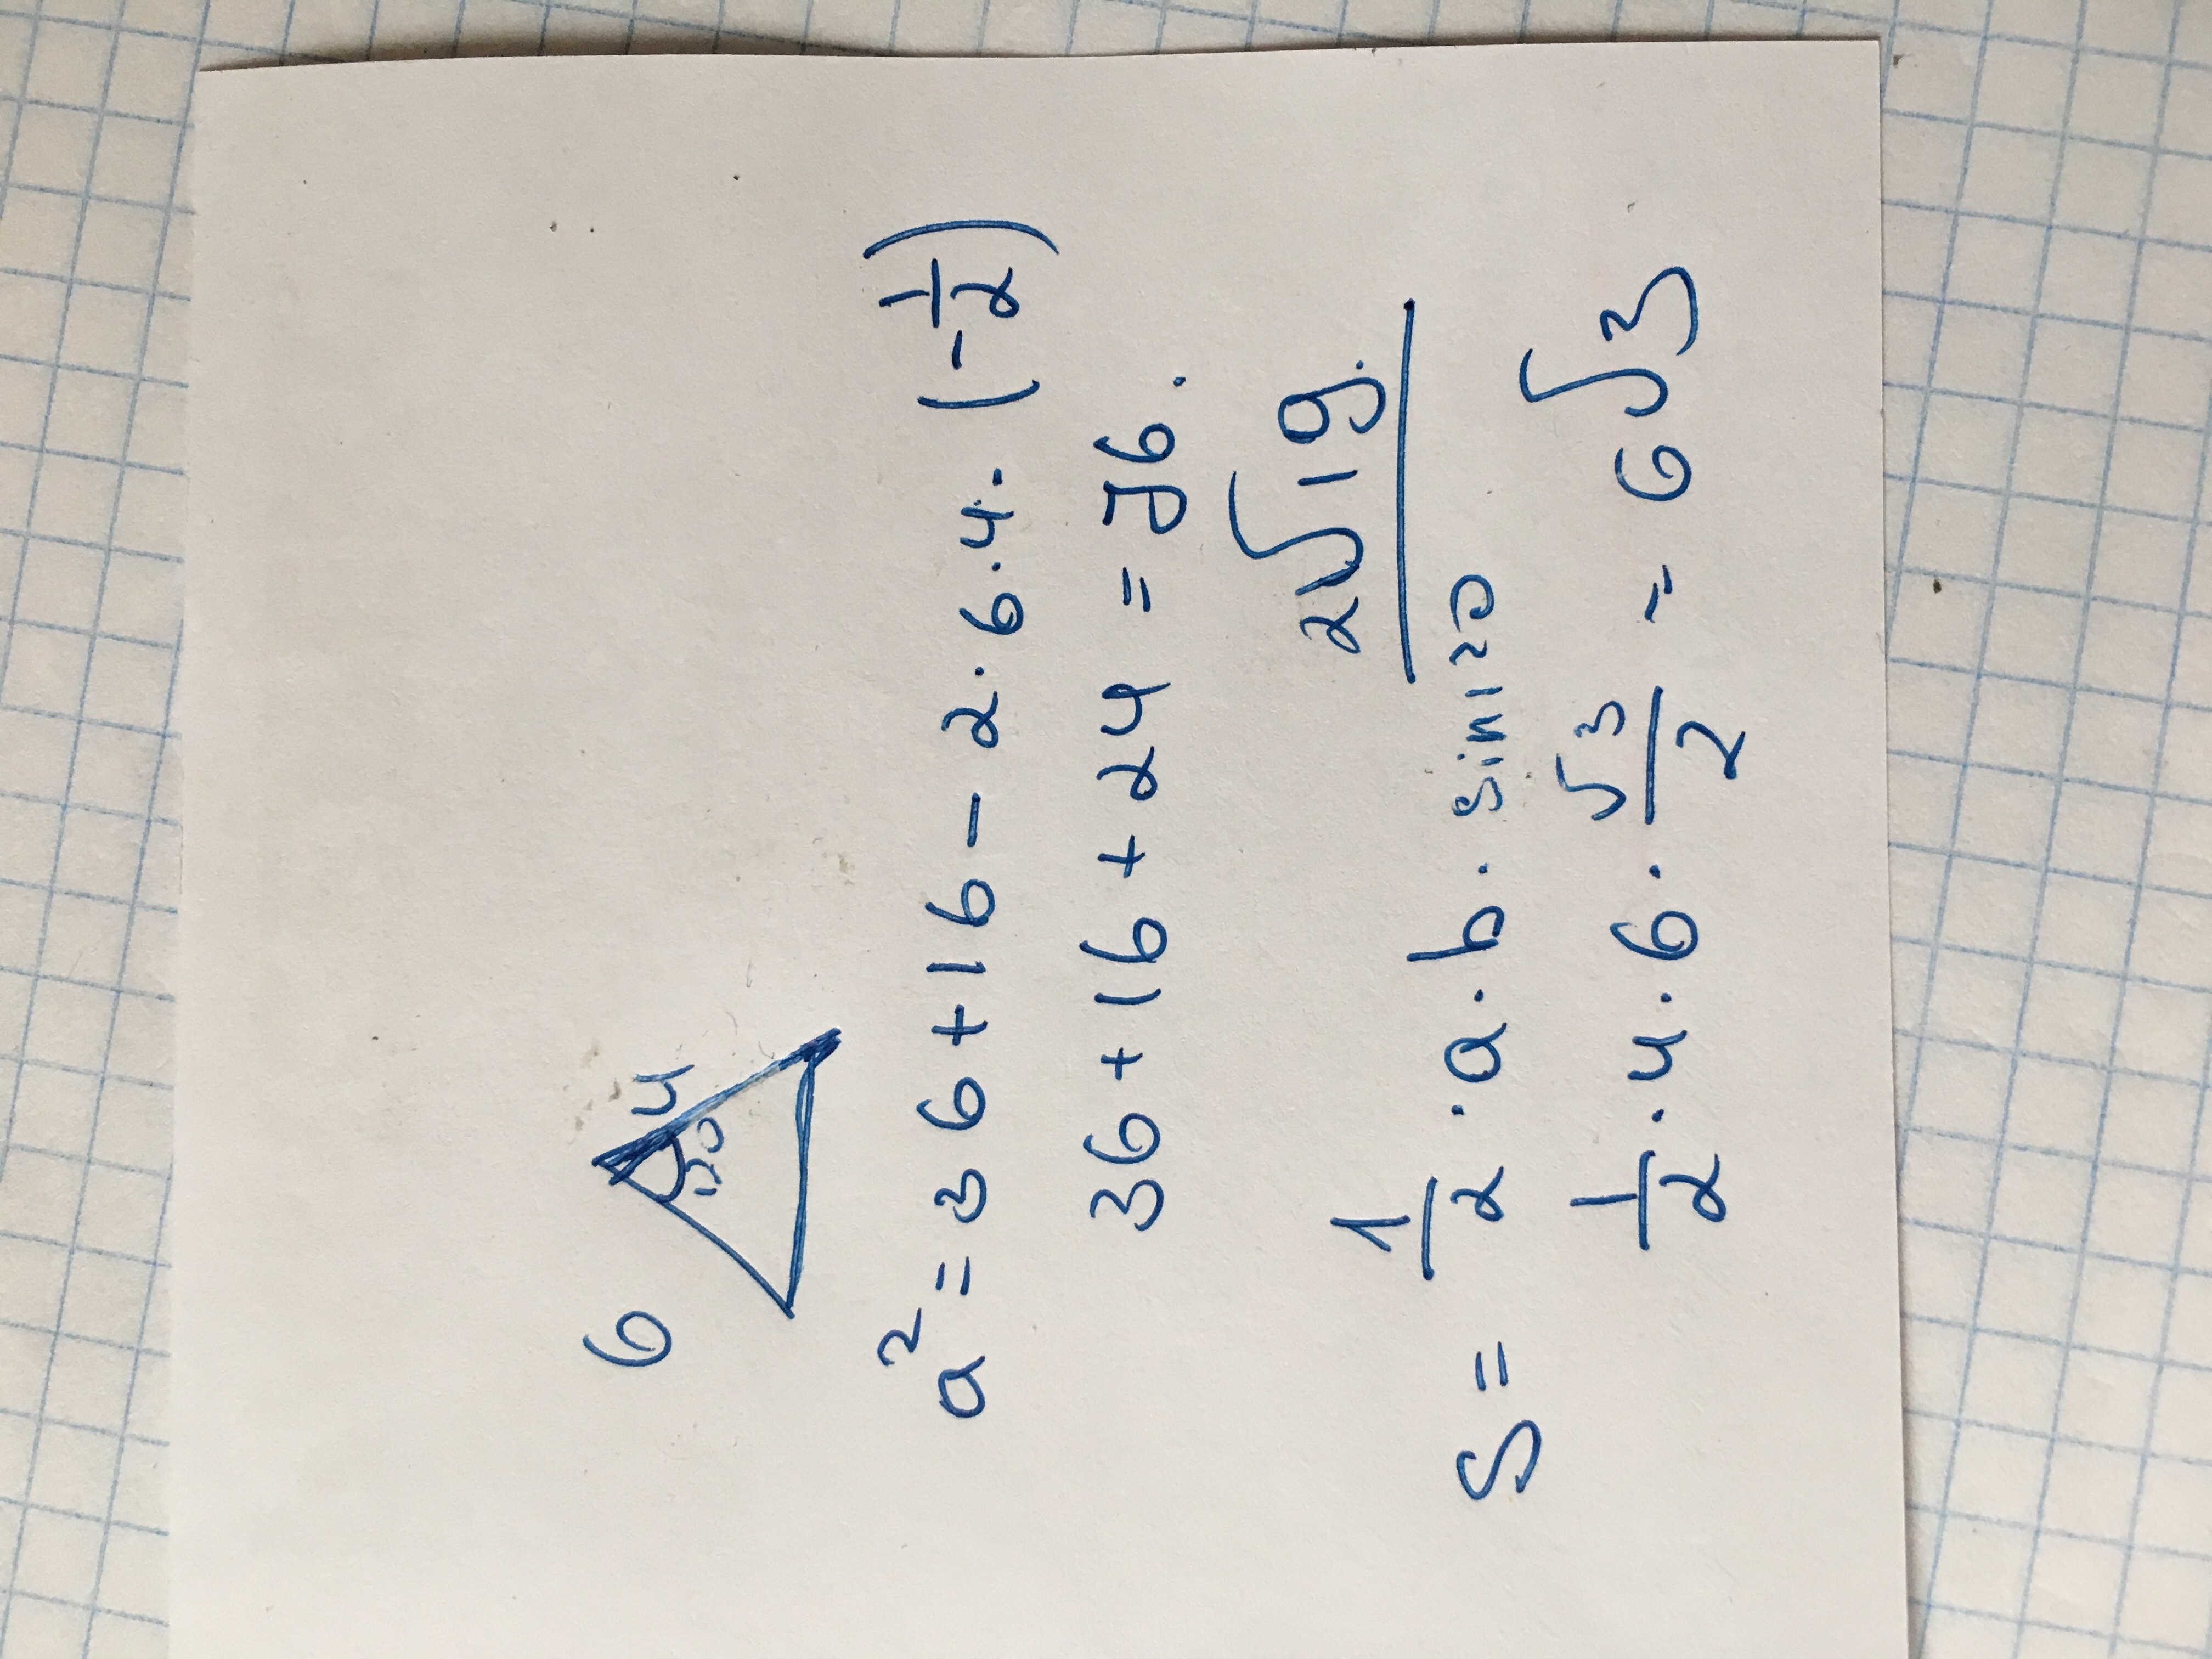 6
4
120
a² = 36 + 16 - 2 · 6 · 4 · (-1/2)
36 + 16 + 24 = 76.
2√19.
S = 1/2 · a · b · sin 120
1/2 · 4 · 6 · √3/2 = 6√3